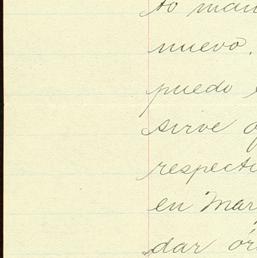 to man
nuevo.
puedo
sirve
respecti
en Mar
dar ór